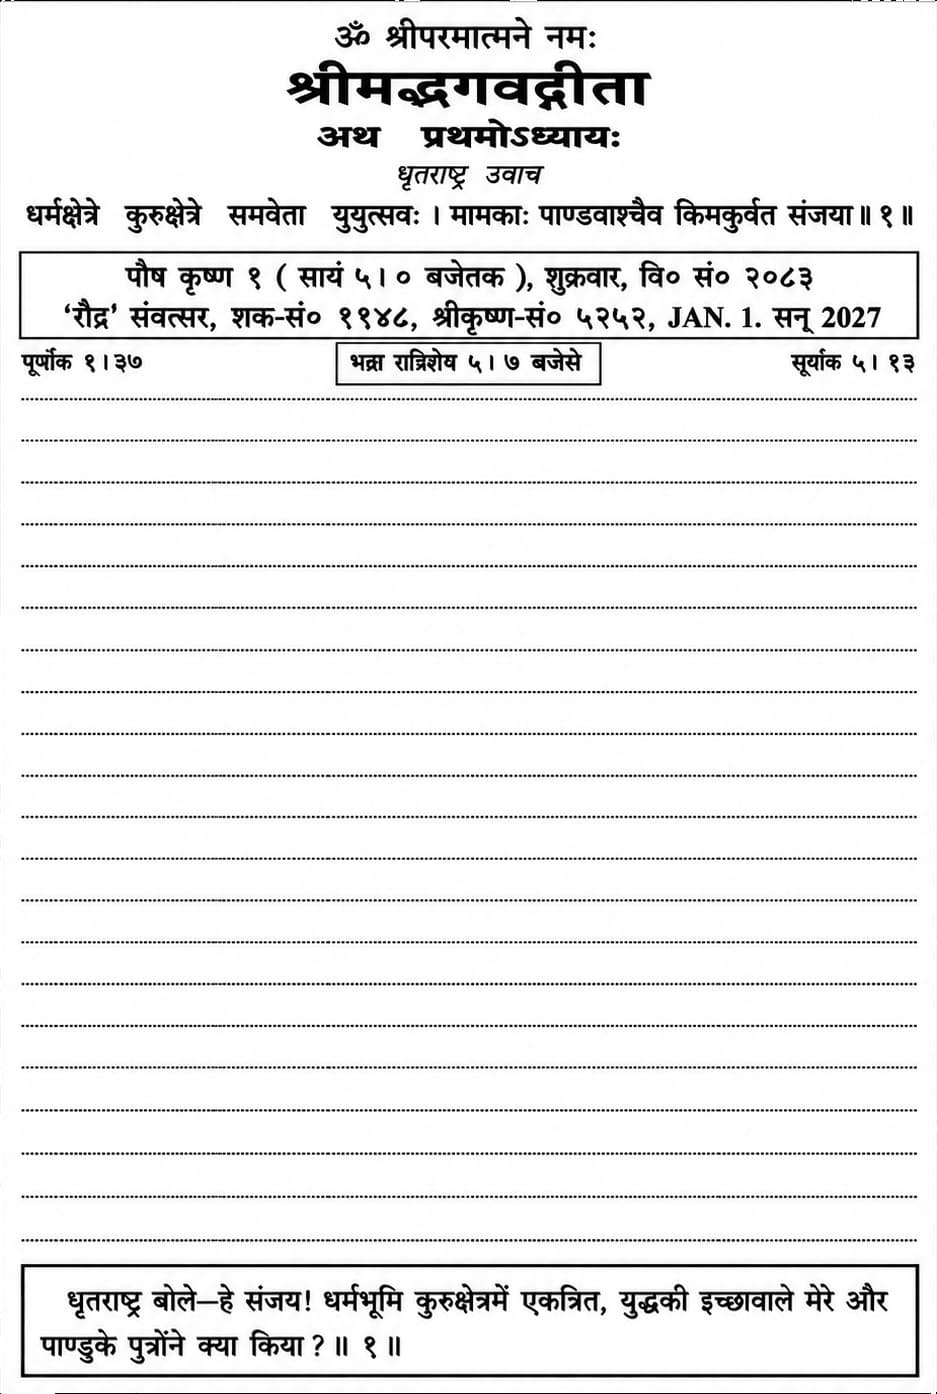 ॐ श्रीपरमात्मने नमः
श्रीमद्भगवद्गीता
अथ प्रथमोऽध्यायः
धृतराष्ट्र उवाच
धर्मक्षेत्रे कुरुक्षेत्रे समवेता युयुत्सवः । मामकाः पाण्डवाश्चैव किमकुर्वत संजया॥ १॥
पौष कृष्ण १ ( सायं ५।० बजेतक ), शुक्रवार, वि० सं० २०८३
‘रौद्र’ संवत्सर, शक-सं० १९४८, श्रीकृष्ण-सं० ५२५२, JAN. 1. सन् 2027
पूर्णोक १।३७ भद्रा रात्रिशेष ५।७ बजेसे सूर्याक ५। १३
धृतराष्ट्र बोले—हे संजय! धर्मभूमि कुरुक्षेत्रमें एकत्रित, युद्धकी इच्छावाले मेरे और
पाण्डुके पुत्रोंने क्या किया?॥ १॥